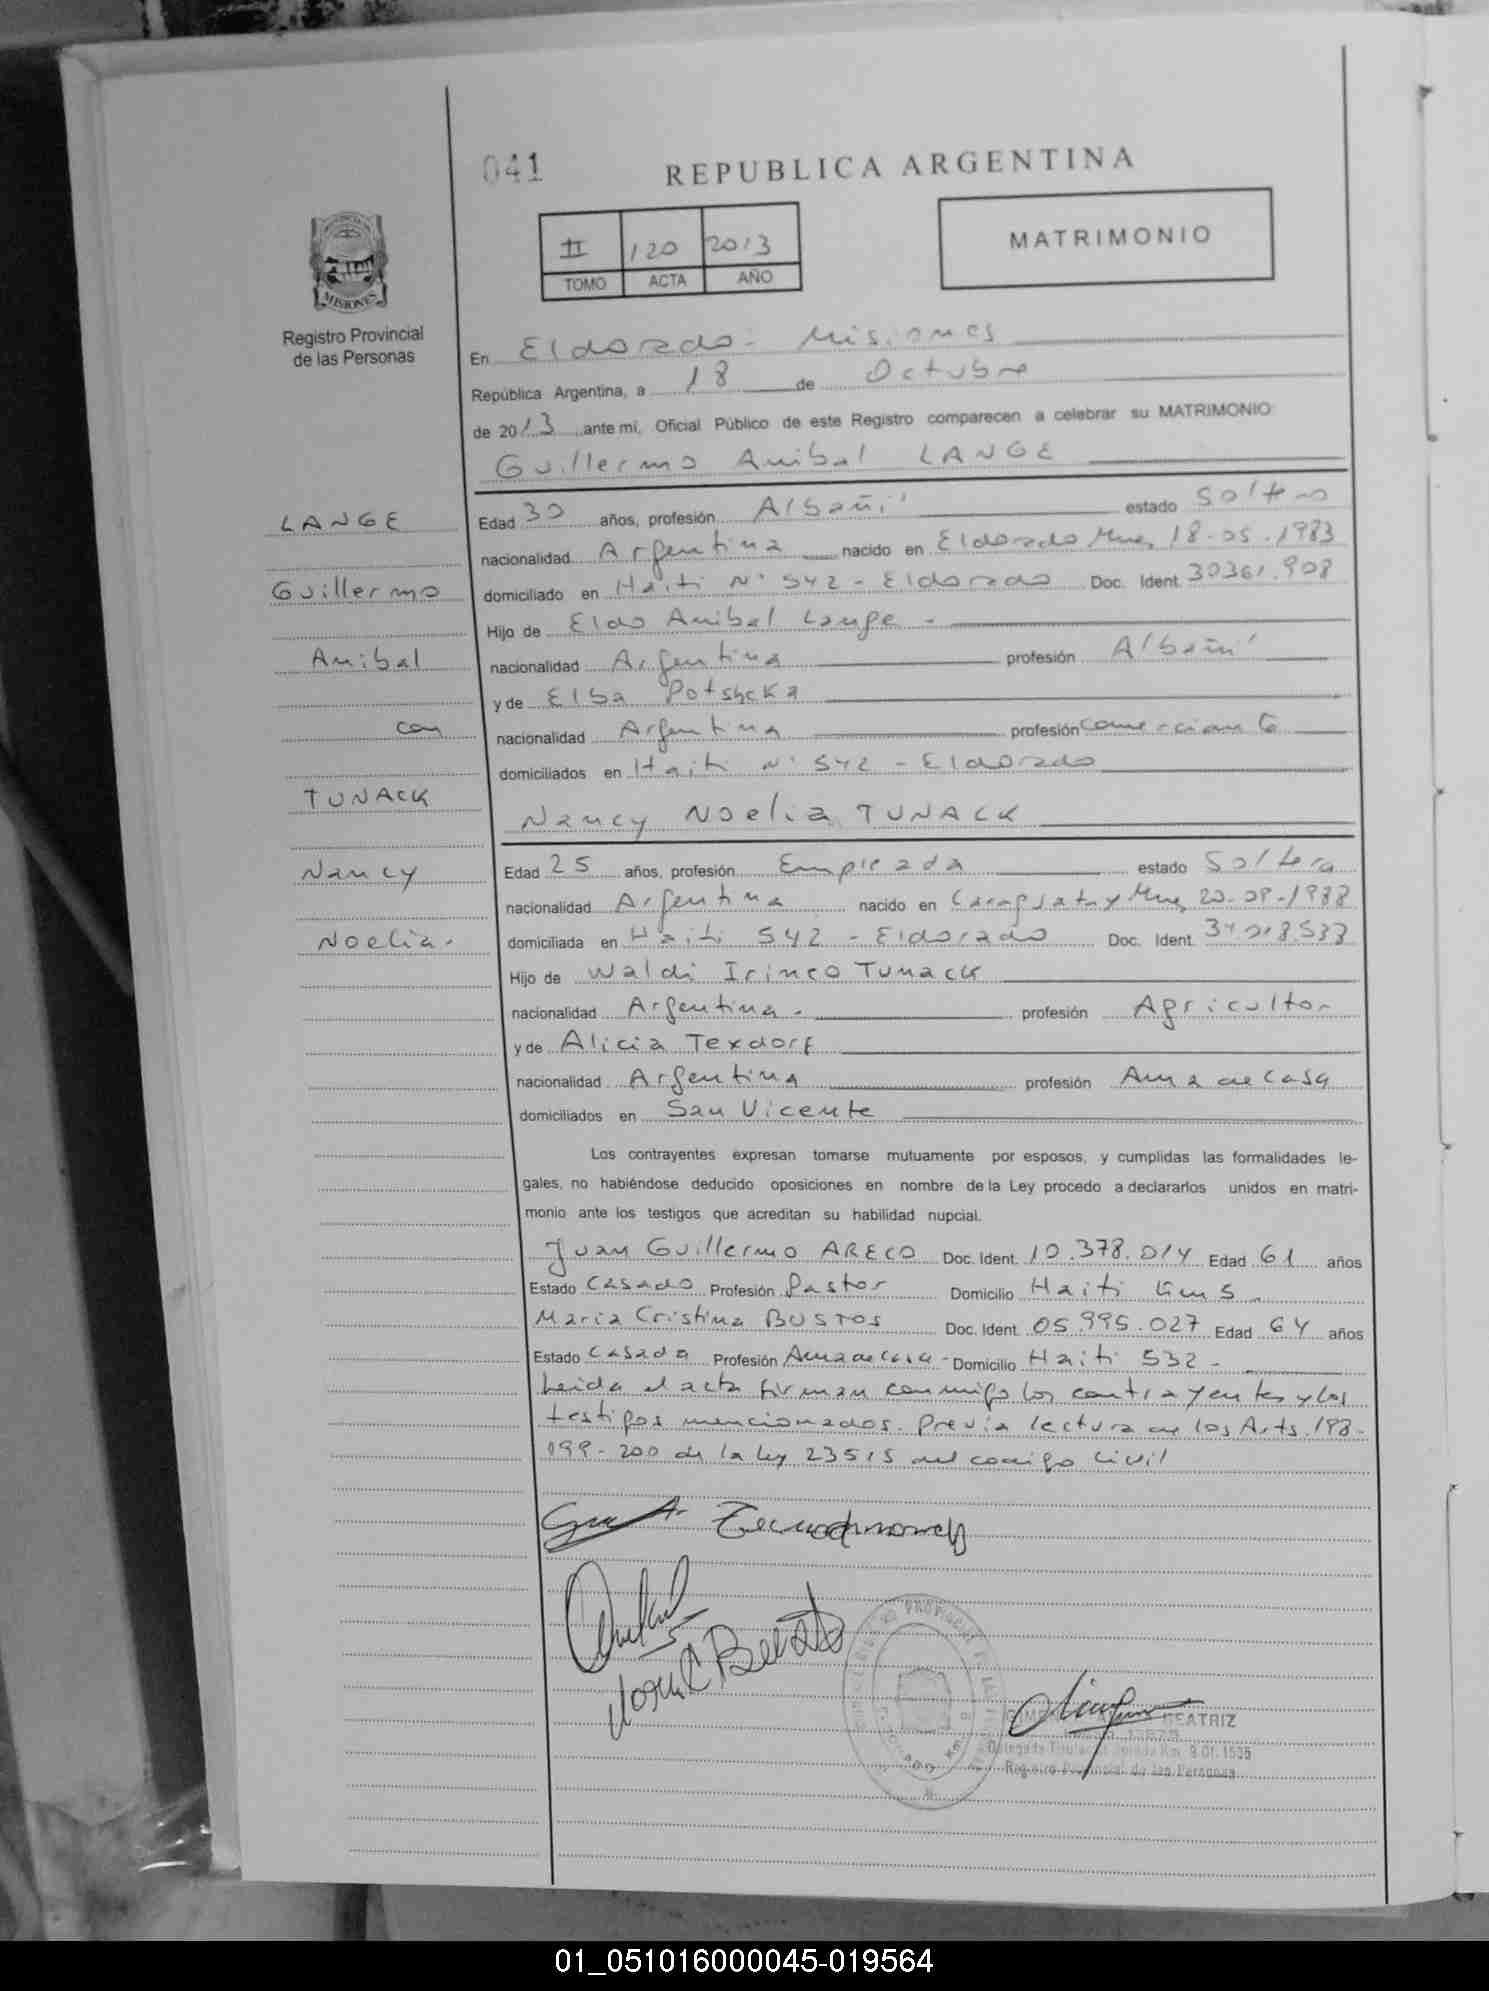 041
REPUBLICA ARGENTINA
II 120 2013
TOMO ACTA AÑO
MATRIMONIO
MISIONES
Registro Provincial
de las Personas
En Eldorado - Misiones
República Argentina, a 18 de Octubre
de 2013 ante mí, Oficial Público de este Registro comparecen a celebrar su MATRIMONIO:
Guillermo Anibal LANGE
LANGE
Guillermo
Anibal
con
TUNACK
Nancy
Noelia.
Edad 30 años, profesión Albañil estado Soltero
nacionalidad Argentina nacido en Eldorado Mnes 18-05-1983
domiciliado en Haiti N° 542 - Eldorado Doc. Ident. 30361.908
Hijo de Eldo Anibal Lange -
nacionalidad Argentina profesión Albañil
y de Elba
nacionalidad Argentina profesión Comerciante
domiciliados en Haiti N° 542 - Eldorado
Nancy Noelia TUNACK
Edad 25 años, profesión Empleada estado Soltera
nacionalidad Argentina nacido en Caraguatay Mnes
domiciliada en Haiti 542 - Eldorado Doc. Ident.
Hijo de Waldi Irineo Tunack
nacionalidad Argentina - profesión Agricultor
y de Alicia Texdorf
nacionalidad Argentina profesión Ama de Casa
domiciliados en San Vicente
Los contrayentes expresan tomarse mutuamente por esposos, y cumplidas las formalidades le-
gales, no habiéndose deducido oposiciones en nombre de la Ley procedo a declararlos unidos en matri-
monio ante los testigos que acreditan su habilidad nupcial.
Juan Guillermo ARECO Doc. Ident. 10.378.014 Edad 61 años
Estado Casado Profesión Pastor Domicilio Haiti Km 5 -
Maria Cristina BUSTOS Doc. Ident. 05.995.027 Edad 64 años
Estado Casada Profesión Ama de casa - Domicilio Haiti 532 -
Leida el acta firman conmigo los contrayentes y los
testigos mencionados. Previa lectura de los Arts. 198-
199-200 de la ley 23515 del codigo Civil
BEATRIZ
Registro Provincial de las Personas
01_051016000045-019564